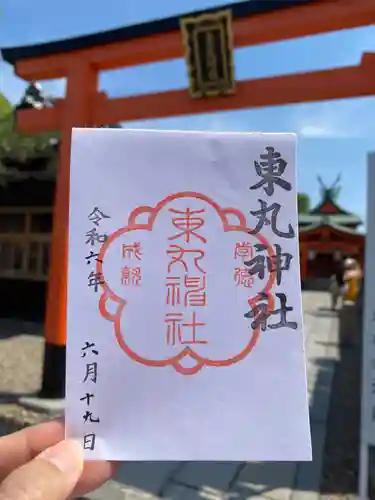 東丸神社
東丸神社
令和六年
六月十九日